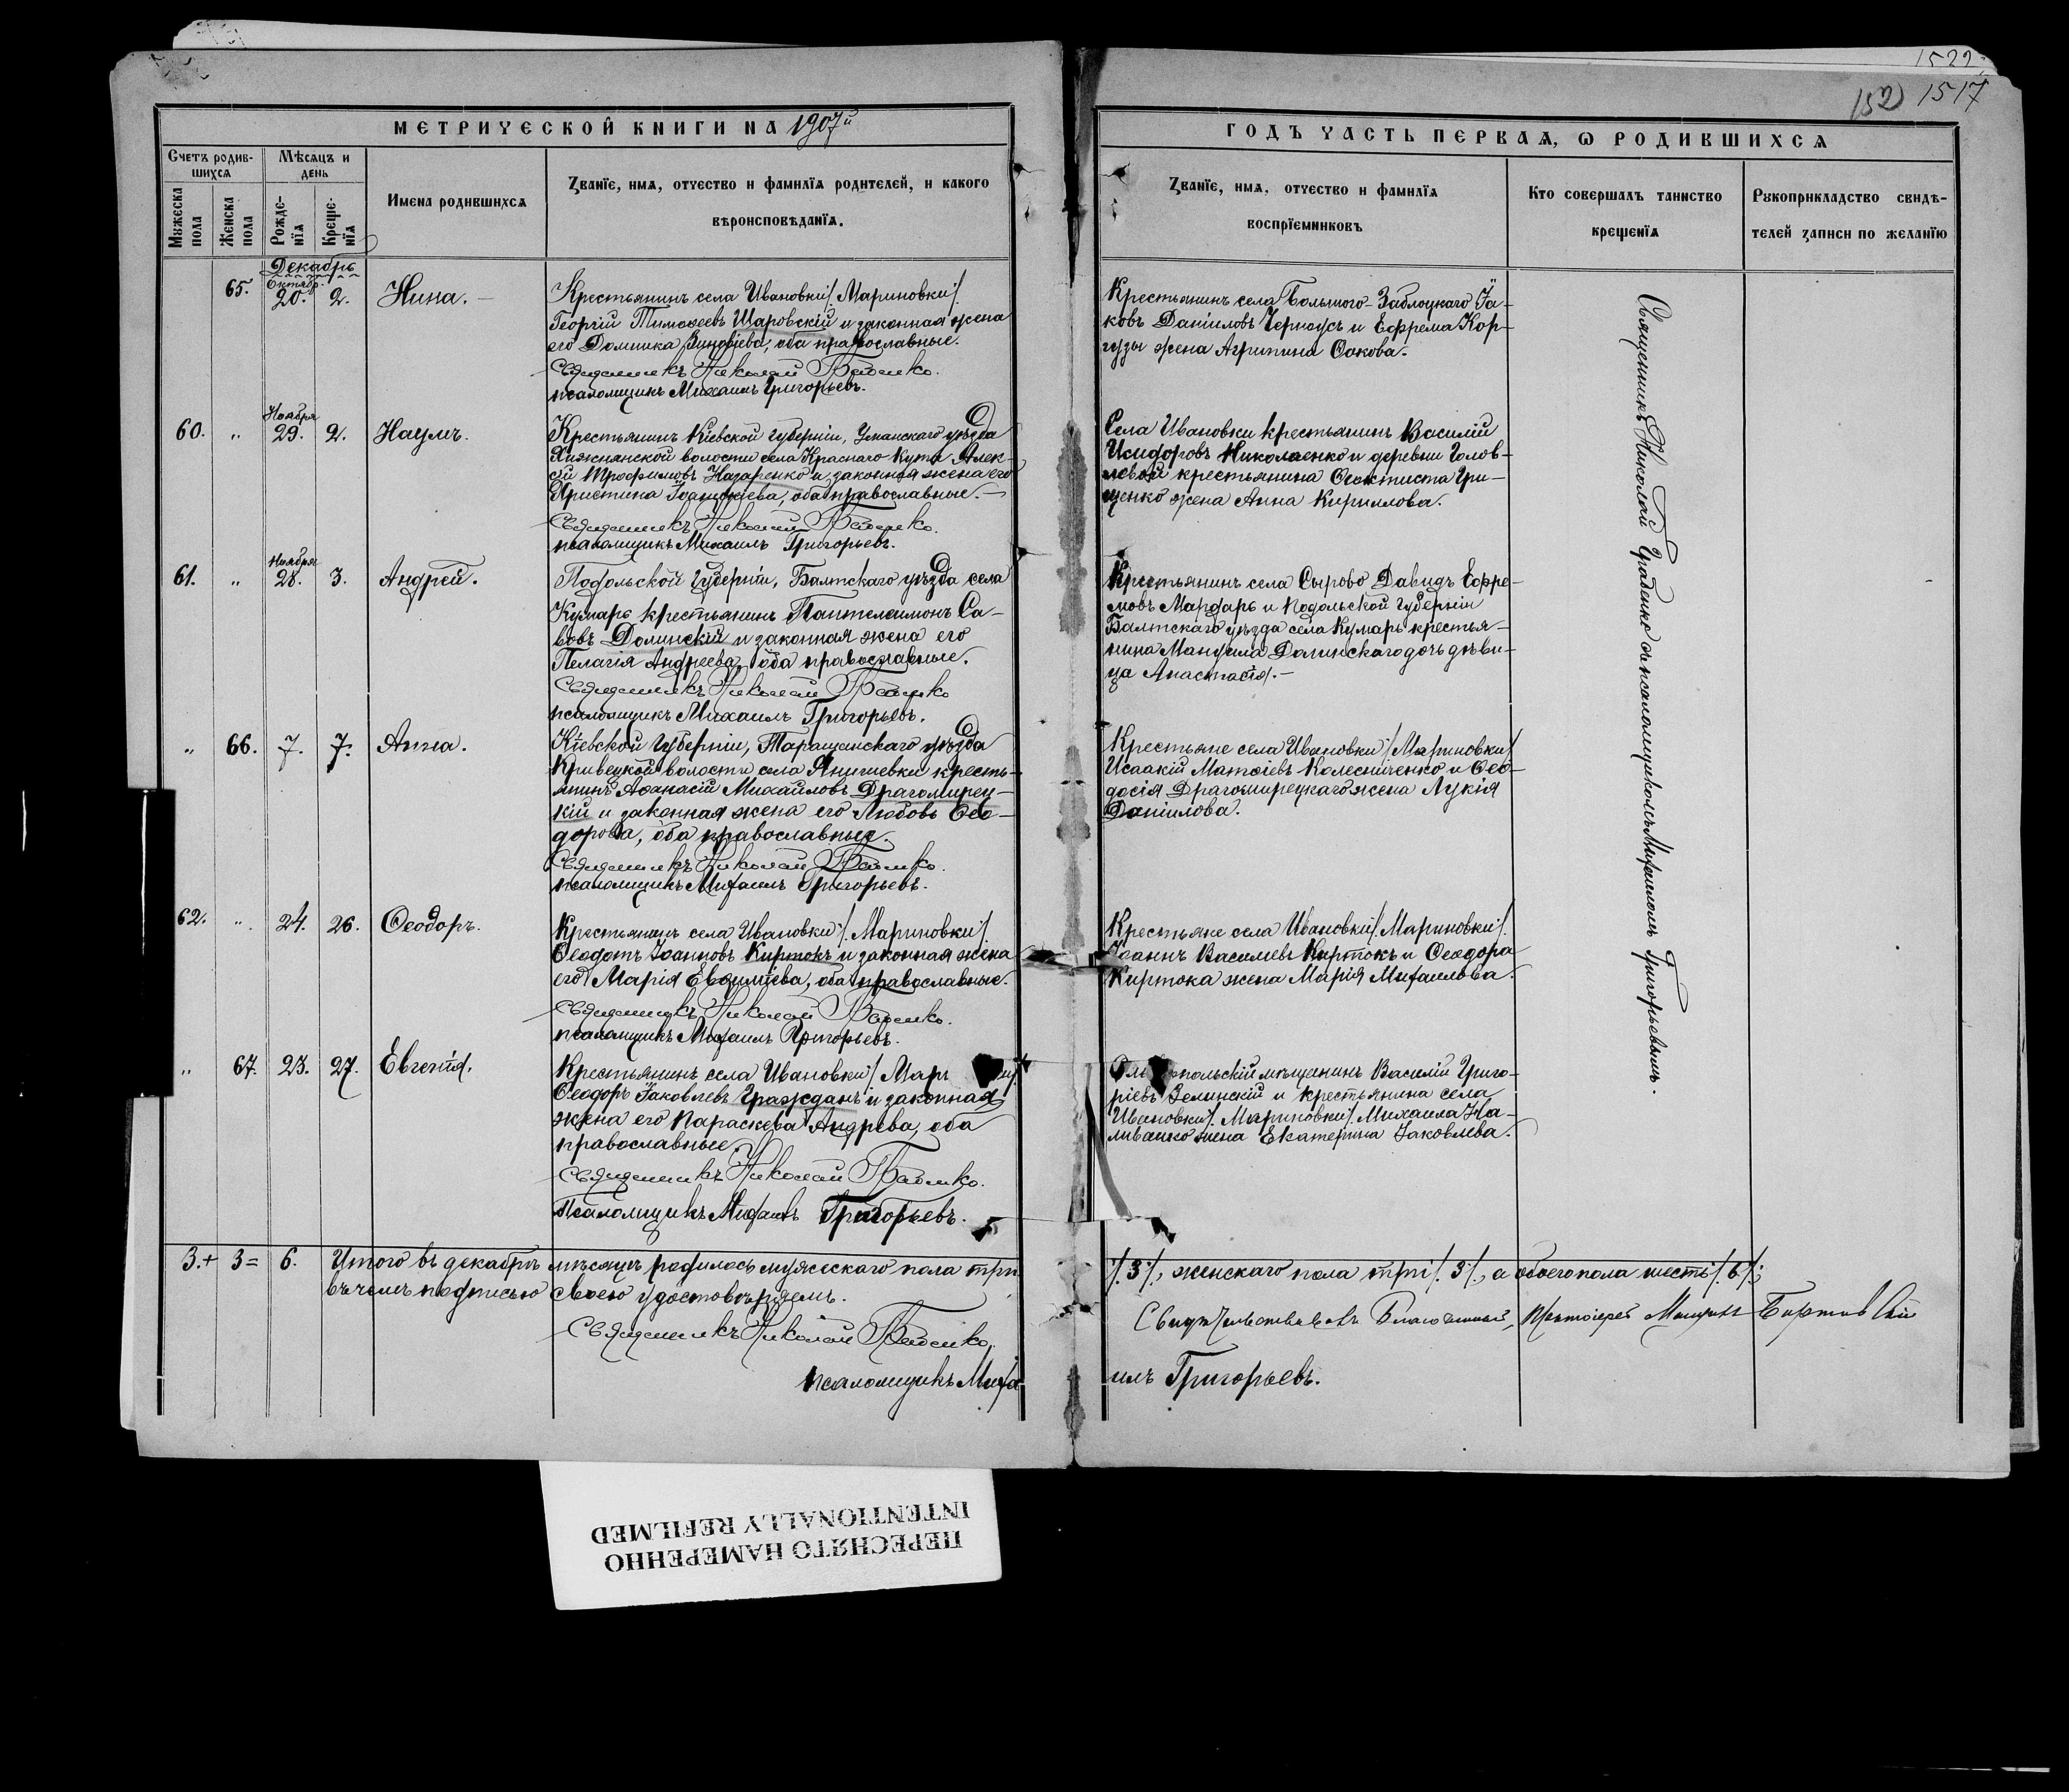 1522.
152 1517
МЕТРИЧЕСКОЙ КНИГИ НА 1907й
ГОДЪ ЧАСТЬ ПЕРВАѦ, Ѡ РОДИВШИХСѦ
Счетъ родив-
шихсѧ
Мѣсѧцъ и
день
Мꙋжеска
пола
Женска
пола
Рожде-
нїѧ
Креще-
нїѧ
Имена родившихсѧ
Званїе, имѧ, отчество и фамилїѧ родителей, и какого
вѣроисповѣданїѧ.
Званїе, имѧ, отчество и фамилїѧ
воспрїемниковъ
Кто совершалъ таинство
крещенїѧ
Рꙋкоприкладство свидѣ-
телей записи по желанїю
Декабрь
Октябр.
65. 20. 2. Нина. —
Крестьянинъ села Ивановки /. Мариновки /.
Георгій Тимоѳеевъ Шаровскій и законная жена
его Домника Зиновіева, оба православные.
Священникъ Николай
псаломщикъ Михаилъ Григорьевъ.
Крестьянинъ села Большого-Заблоцкаго Іа-
ковъ Даніиловъ Черноусъ и Ефрема Кор-
гузы жена Агрипина Ѳокова.
Ноября
60. „ 29. 2. Наумъ.
Крестьянинъ Кіевской губерніи, Уманскаго уѣзда
Хижнянской волости села Краснаго Кута Алек-
ѣй Трофимовъ Назаренко и законная жена его
Христина Іоанникіева, оба православные. —
Священникъ Николай
псаломщикъ Михаилъ Григорьевъ.
Села Ивановки крестьянинъ Василій
Исидоровъ Николаенко и деревни Голов-
левой крестьянина Ѳеоктиста Гри-
щенко жена Анна Кириллова.
Ноября
61. „ 28. 3. Андрей.
Подольской Губерніи, Балтскаго уѣзда села
Кумарь крестьянинъ Пантелеимонъ Са-
вовъ Долинскій и законная жена его
Пелагія Андреева, оба православные.
Священникъ Николай
псаломщикъ Михаилъ Григорьевъ.
Крестьянинъ села Сырово Давидъ Ефре-
мовъ Мардарь и Подольской Губерніи
Балтскаго уѣзда села Кумарь крестья-
нина Мануила Долинскаго дочь дѣви-
ца Анастасія. —
„ 66. 7. 7. Анна.
Кіевской Губерніи, Таращанскаго уѣзда
Кривецкой волости села Янишевки кресть-
янинъ Аѳанасій Михайловъ Драгомирец-
кій и законная жена его Любовь Ѳео-
дорова, оба православные.
Священникъ Николай
псаломщикъ Михаилъ Григорьевъ.
Крестьяне села Ивановки /. Мариновки /.
Исаакій Матѳіевъ Колесниченко и Ѳео-
досія Драгомирецкаго жена Лукія
Даніилова.
62. „ 24. 26. Ѳеодоръ.
Крестьянинъ села Ивановки /. Мариновки /.
Ѳеодотъ Іоанновъ Киртокъ и законная жена
его Марія Евѳиміева, оба православные.
Священникъ Николай
псаломщикъ Михаилъ Григорьевъ.
Крестьяне села Ивановки /. Мариновки /.
Іоаннъ Василіевъ Киртокъ и Ѳеодора
Киртока жена Марія Михаилова.
„ 67. 23. 27. Евгенія.
Крестьянинъ села Ивановки /. Мар
Ѳеодоръ Іаковлевъ Гражданъ и законная
жена его Параскева Андрѣева, оба
православные.
Священникъ Николай
Псаломщикъ Михаилъ Григорьевъ.
польскій мѣщанинъ Василій Григо-
ріевъ Зелинскій и крестьянина села
Ивановки /. Мариновки /. Михаила На-
ливайко жена Екатерина Іаковлева.
Священникъ Николай съ псаломщикомъ Михаиломъ Григорьевымъ.
3. + 3 = 6. Итого въ декабрѣ мѣсяцѣ родилось мужескаго пола три
/. 3 /., женскаго пола три /. 3 /., а обоего пола шесть /. 6 /.;
въ чемъ подписью своею удостовѣряемъ.
Священникъ Николай
Свидѣтельствовалъ Благочинный, Протоіерей
псаломщикъ Миха
илъ Григорьевъ.
ПЕРЕСНЯТО НАМЕРЕННО
INTENTIONALLY REFILMED